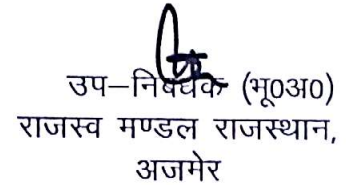 उप–निबंधक (भू0अ0)
राजस्व मण्डल राजस्थान,
अजमेर